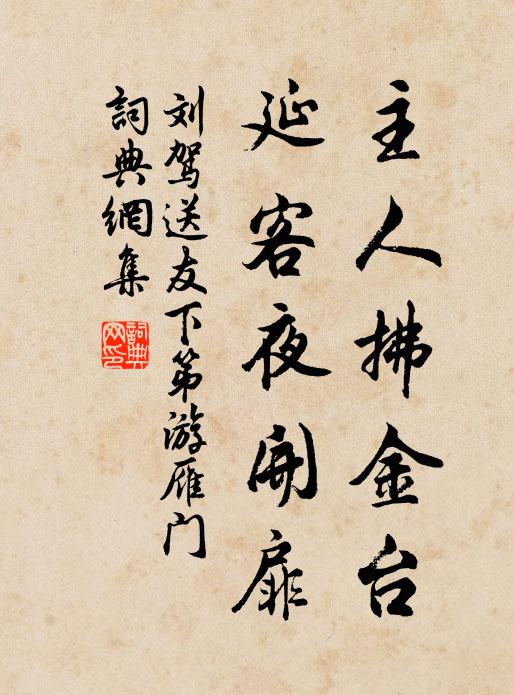 主人拂金台
延客夜開扉
刘驾送友下第游雁门
詞典網集
詞典網印